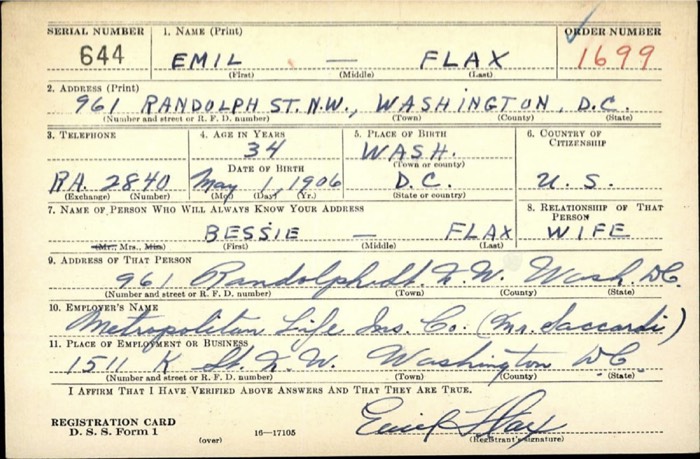 SERIAL NUMBER 1. NAME (Print) ORDER NUMBER
644 EMIL — FLAX 1699
(First) (Middle) (Last)
2. ADDRESS (Print)
961 RANDOLPH ST. N.W., WASHINGTON, D.C.
(Number and street or R. F. D. number) (Town) (County) (State)
3. TELEPHONE 4. AGE IN YEARS 5. PLACE OF BIRTH 6. COUNTRY OF CITIZENSHIP
34 WASH.
DATE OF BIRTH (Town or county)
RA. 2840 May 1, 1906 D.C. U.S.
(Exchange) (Number) (Mo.) (Day) (Yr.) (State or country)
7. NAME OF PERSON WHO WILL ALWAYS KNOW YOUR ADDRESS 8. RELATIONSHIP OF THAT PERSON
BESSIE — FLAX WIFE
(Mr., Mrs., Miss) (First) (Middle) (Last)
9. ADDRESS OF THAT PERSON
961 Randolph St. N.W. Wash. DC.
(Number and street or R. F. D. number) (Town) (County) (State)
10. EMPLOYER'S NAME
Metropolitan Life Ins. Co. (Mr. Saccardi)
11. PLACE OF EMPLOYMENT OR BUSINESS
1511 K St. N.W. Washington DC
(Number and street or R. F. D. number) (Town) (County) (State)
I AFFIRM THAT I HAVE VERIFIED ABOVE ANSWERS AND THAT THEY ARE TRUE.
Emil Flax
REGISTRATION CARD
D. S. S. Form 1 (over) 16—17105 (Registrant's signature)